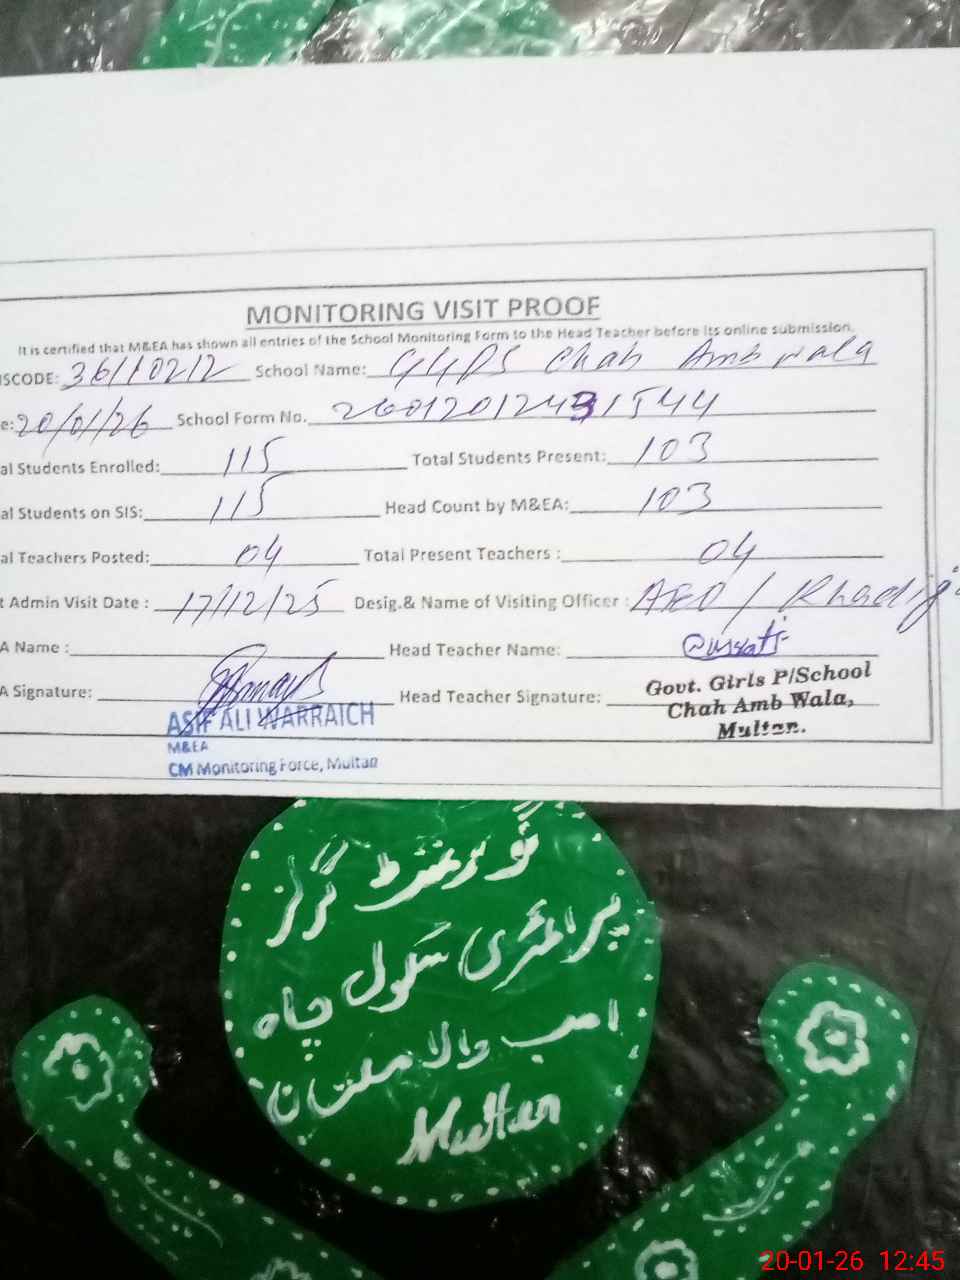 MONITORING VISIT PROOF
It is certified that M&EA has shown all entries of the School Monitoring Form to the Head Teacher before its online submission.
ISCODE: 36110212 School Name: GGPS Chah Amb wala
e: 20/01/26 School Form No. 26012012431544
al Students Enrolled: 115 Total Students Present: 103
al Students on SIS: 115 Head Count by M&EA: 103
al Teachers Posted: 04 Total Present Teachers : 04
t Admin Visit Date : 17/12/25 Desig.& Name of Visiting Officer : AEO / Khadija
A Name : Head Teacher Name:
A Signature: Head Teacher Signature:
Govt. Girls P/School
Chah Amb Wala,
Multan.
ASIF ALI WARRAICH
M&EA
CM Monitoring Force, Multan
گورنمنٹ گرلز
پرائمری سکول چاہ
امب والا ملتان
Multan
20-01-26 12:45